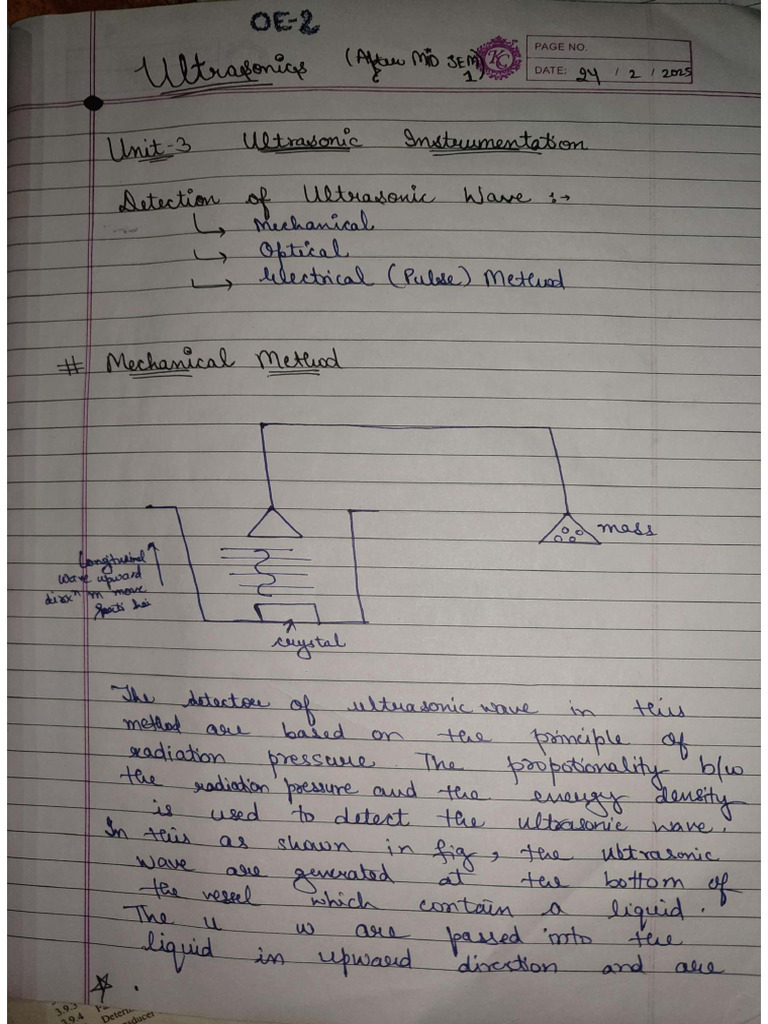 OE-2
Ultrasonics (After MID SEM 1)
KC
PAGE NO.
DATE: 24 / 2 / 2025
Unit-3 Ultrasonic Instrumentation
Detection of Ultrasonic Wave :→
↳ Mechanical
↳ Optical
↳ Electrical (Pulse) Method
# Mechanical Method
mass
Longitudinal
wave upward
dirxⁿ m move
karti hai
crystal
The detector of ultrasonic wave in this
method are based on the principle of
radiation pressure. The propotionality b/w
the radiation pressure and the energy density
is used to detect the ultrasonic wave.
In this as shown in fig, the ultrasonic
wave are generated at the bottom of
the vessel which contain a liquid.
The u w are passed into the
liquid in upward direction and are
3.9.3
3.9.4 Deter
ducer